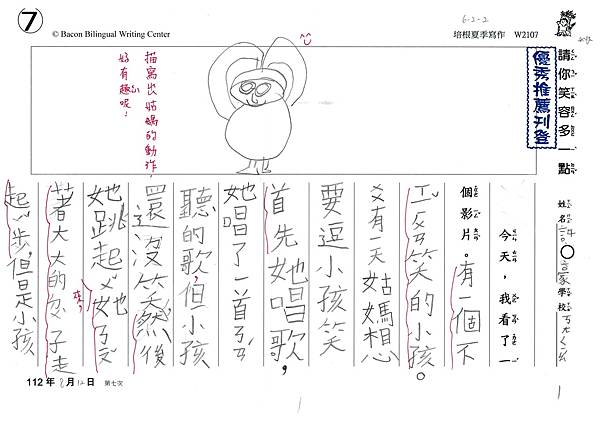 7
© Bacon Bilingual Writing Center
6-2-2
培根夏季寫作 W2107
請你笑容多一點
優秀推薦刊登
描寫出姑媽的動作,
好有趣呢!
姓名:
學校:
今天,我看了一
個影片。有一個不
ㄞˋ笑的小孩。
又有一天姑媽想
要逗小孩笑
首先她唱歌,
她唱了一首ㄍㄜ
聽的歌,但小孩
還沒笑然後
她跳起
著大大的肚子走
起ㄌㄨˋ步,但是小孩
112 年 8 月 12 日 第七次
1